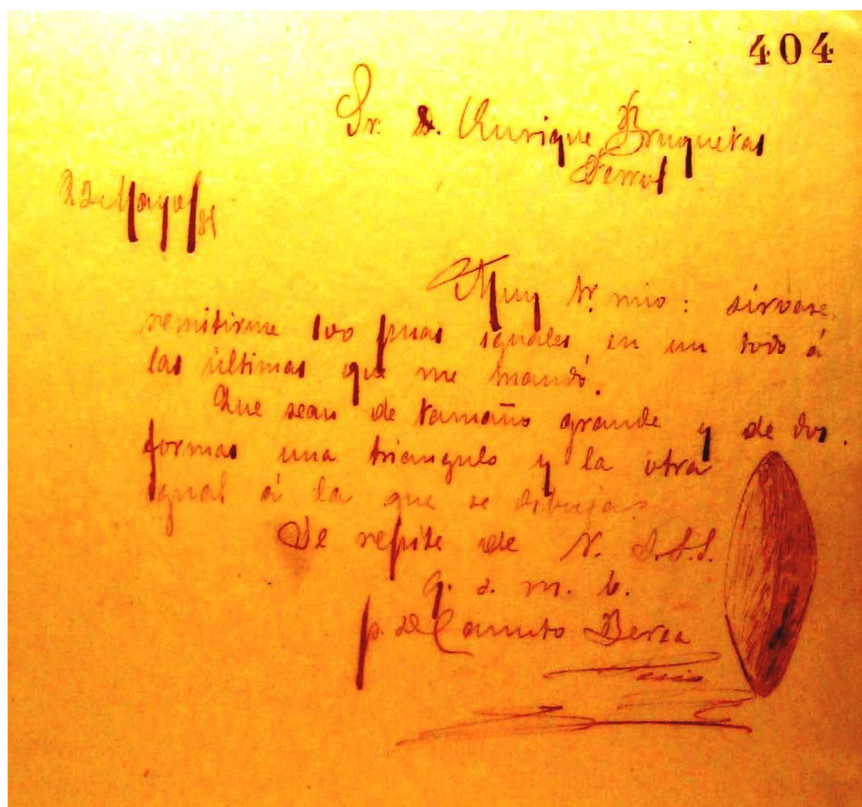 404
Sr. D. Enrique Bruquetas
Ferrol
2 de Mayo/81
Muy Sr. mio: sirvase
remitirme 100 puas iguales en un todo á
las últimas que me mandó.
Que sean de tamaño grande y de dos
formas una triangulo y la otra
igual á la que se dibuja.
Se repite de V. S.S.S.
q. s. m. b.
p. D. Canuto Berea